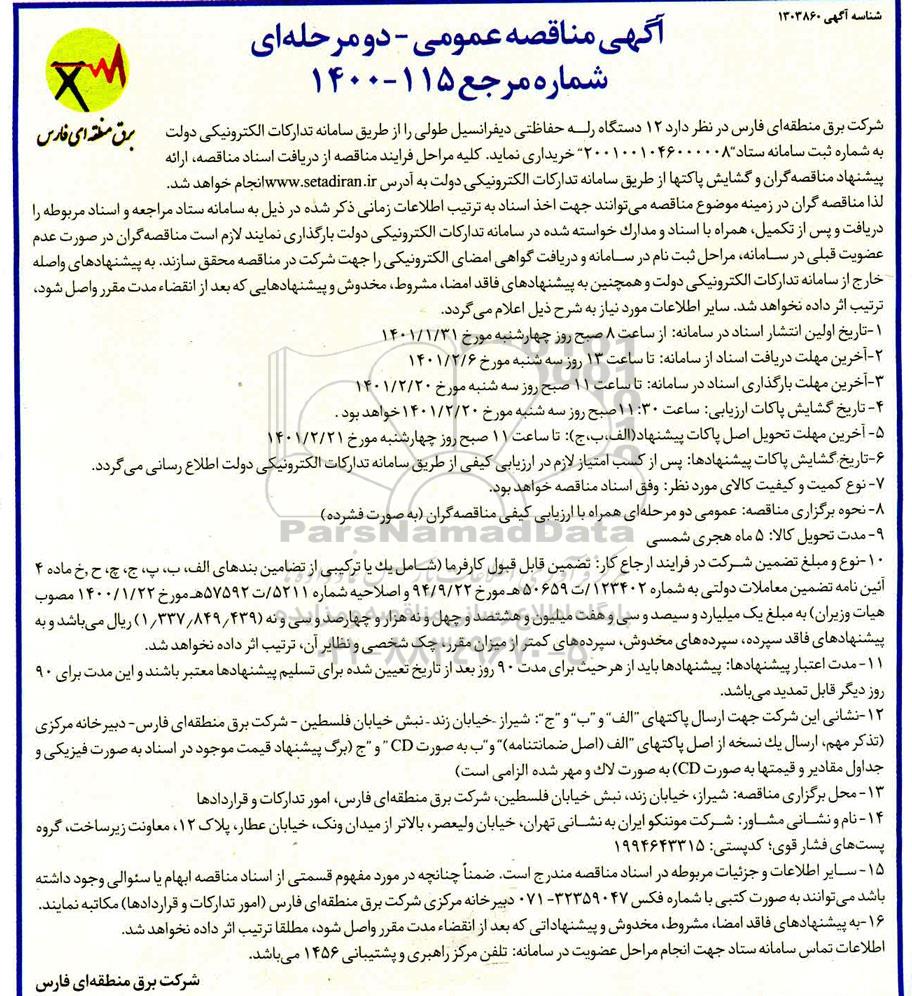 شناسه آگهی ۱۳۰۳۸۶۰
آگهی مناقصه عمومی - دو مرحله‌ای
شماره مرجع ۱۱۵-۱۴۰۰
برق منطقه‌ای فارس
شرکت برق منطقه‌ای فارس در نظر دارد ۱۲ دستگاه رله حفاظتی دیفرانسیل طولی را از طریق سامانه تدارکات الکترونیکی دولت
به شماره ثبت سامانه ستاد "۲۰۰۱۰۰۱۰۴۶۰۰۰۰۰۸" خریداری نماید. کلیه مراحل فرایند مناقصه از دریافت اسناد مناقصه، ارائه
پیشنهاد مناقصه‌گران و گشایش پاکتها از طریق سامانه تدارکات الکترونیکی دولت به آدرس www.setadiran.ir انجام خواهد شد.
لذا مناقصه گران در زمینه موضوع مناقصه می‌توانند جهت اخذ اسناد به ترتیب اطلاعات زمانی ذکر شده در ذیل به سامانه ستاد مراجعه و اسناد مربوطه را
دریافت و پس از تکمیل، همراه با اسناد و مدارك خواسته شده در سامانه تدارکات الکترونیکی دولت بارگذاری نمایند لازم است مناقصه‌گران در صورت عدم
عضویت قبلی در سامانه، مراحل ثبت نام در سامانه و دریافت گواهی امضای الکترونیکی را جهت شرکت در مناقصه محقق سازند. به پیشنهادهای واصله
خارج از سامانه تدارکات الکترونیکی دولت و همچنین به پیشنهادهای فاقد امضا، مشروط، مخدوش و پیشنهادهایی که بعد از انقضاء مدت مقرر واصل شود،
ترتیب اثر داده نخواهد شد. سایر اطلاعات مورد نیاز به شرح ذیل اعلام می‌گردد.
۱-تاریخ اولین انتشار اسناد در سامانه: از ساعت ۸ صبح روز چهارشنبه مورخ ۱۴۰۱/۱/۳۱
۲-آخرین مهلت دریافت اسناد از سامانه: تا ساعت ۱۳ روز سه شنبه مورخ ۱۴۰۱/۲/۶
۳-آخرین مهلت بارگذاری اسناد در سامانه: تا ساعت ۱۱ صبح روز سه شنبه مورخ ۱۴۰۱/۲/۲۰
۴- تاریخ گشایش پاکات ارزیابی: ساعت ۱۱:۳۰ صبح روز سه شنبه مورخ ۱۴۰۱/۲/۲۰ خواهد بود .
۵- آخرین مهلت تحویل اصل پاکات پیشنهاد(الف،ب،ج): تا ساعت ۱۱ صبح روز چهارشنبه مورخ ۱۴۰۱/۲/۲۱
۶-تاریخ گشایش پاکات پیشنهادها: پس از کسب امتیاز لازم در ارزیابی کیفی از طریق سامانه تدارکات الکترونیکی دولت اطلاع رسانی می‌گردد.
۷- نوع کمیت و کیفیت کالای مورد نظر: وفق اسناد مناقصه خواهد بود.
۸- نحوه برگزاری مناقصه: عمومی دو مرحله‌ای همراه با ارزیابی کیفی مناقصه‌گران (به صورت فشرده)
ParsNamadData
۹- مدت تحویل کالا: ۵ ماه هجری شمسی
۱۰-نوع و مبلغ تضمین شرکت در فرایند ارجاع کار: تضمین قابل قبول کارفرما (شامل یك یا ترکیبی از تضامین بندهای الف، ب، پ، ج، چ، ح ,خ ماده ۴
آئین نامه تضمین معاملات دولتی به شماره ۱۲۳۴۰۲/ت ۵۰۶۵۹هـ مورخ ۹۴/۹/۲۲ و اصلاحیه شماره ۵۲۱۱/ت۵۷۵۹۲هـ مورخ ۱۴۰۰/۱/۲۲ مصوب
هیات وزیران) به مبلغ یک میلیارد و سیصد و سی و هفت میلیون و هشتصد و چهل و نه هزار و چهارصد و سی و نه (۱,۳۳۷,۸۴۹,۴۳۹) ریال می‌باشد و به
پیشنهادهای فاقد سپرده، سپرده‌های مخدوش، سپرده‌های کمتر از میزان مقرر، چک شخصی و نظایر آن، ترتیب اثر داده نخواهد شد.
۱۱-مدت اعتبار پیشنهادها: پیشنهادها باید از هر حیث برای مدت ۹۰ روز بعد از تاریخ تعیین شده برای تسلیم پیشنهادها معتبر باشند و این مدت برای ۹۰
روز دیگر قابل تمدید می‌باشد.
۱۲-نشانی این شرکت جهت ارسال پاکتهای "الف" و "ب" و "ج": شیراز -خیابان زند- نبش خیابان فلسطین - شرکت برق منطقه‌ای فارس- دبیرخانه مرکزی
(تذکر مهم، ارسال یك نسخه از اصل پاکتهای "الف (اصل ضمانتنامه)" و "ب به صورت CD" و "ج (برگ پیشنهاد قیمت موجود در اسناد به صورت فیزیکی و
جداول مقادیر و قیمتها به صورت CD) به صورت لاك و مهر شده الزامی است)
۱۳- محل برگزاری مناقصه: شیراز، خیابان زند، نبش خیابان فلسطین، شرکت برق منطقه‌ای فارس، امور تدارکات و قراردادها
۱۴- نام و نشانی مشاور: شرکت موننکو ایران به نشانی تهران، خیابان ولیعصر، بالاتر از میدان ونک، خیابان عطار، پلاک ۱۲، معاونت زیرساخت، گروه
پست‌های فشار قوی؛ کدپستی: ۱۹۹۴۶۴۳۳۱۵
۱۵- سایر اطلاعات و جزئیات مربوطه در اسناد مناقصه مندرج است. ضمناً چنانچه در مورد مفهوم قسمتی از اسناد مناقصه ابهام یا سئوالی وجود داشته
باشد می‌توانند به صورت کتبی با شماره فکس ۳۲۳۵۹۰۴۷-۰۷۱ دبیرخانه مرکزی شرکت برق منطقه‌ای فارس (امور تدارکات و قراردادها) مکاتبه نمایند.
۱۶-به پیشنهادهای فاقد امضا، مشروط، مخدوش و پیشنهاداتی که بعد از انقضاء مدت مقرر واصل شود، مطلقا ترتیب اثر داده نخواهد شد.
اطلاعات تماس سامانه ستاد جهت انجام مراحل عضویت در سامانه: تلفن مرکز راهبری و پشتیبانی ۱۴۵۶ می‌باشد.
شرکت برق منطقه‌ای فارس